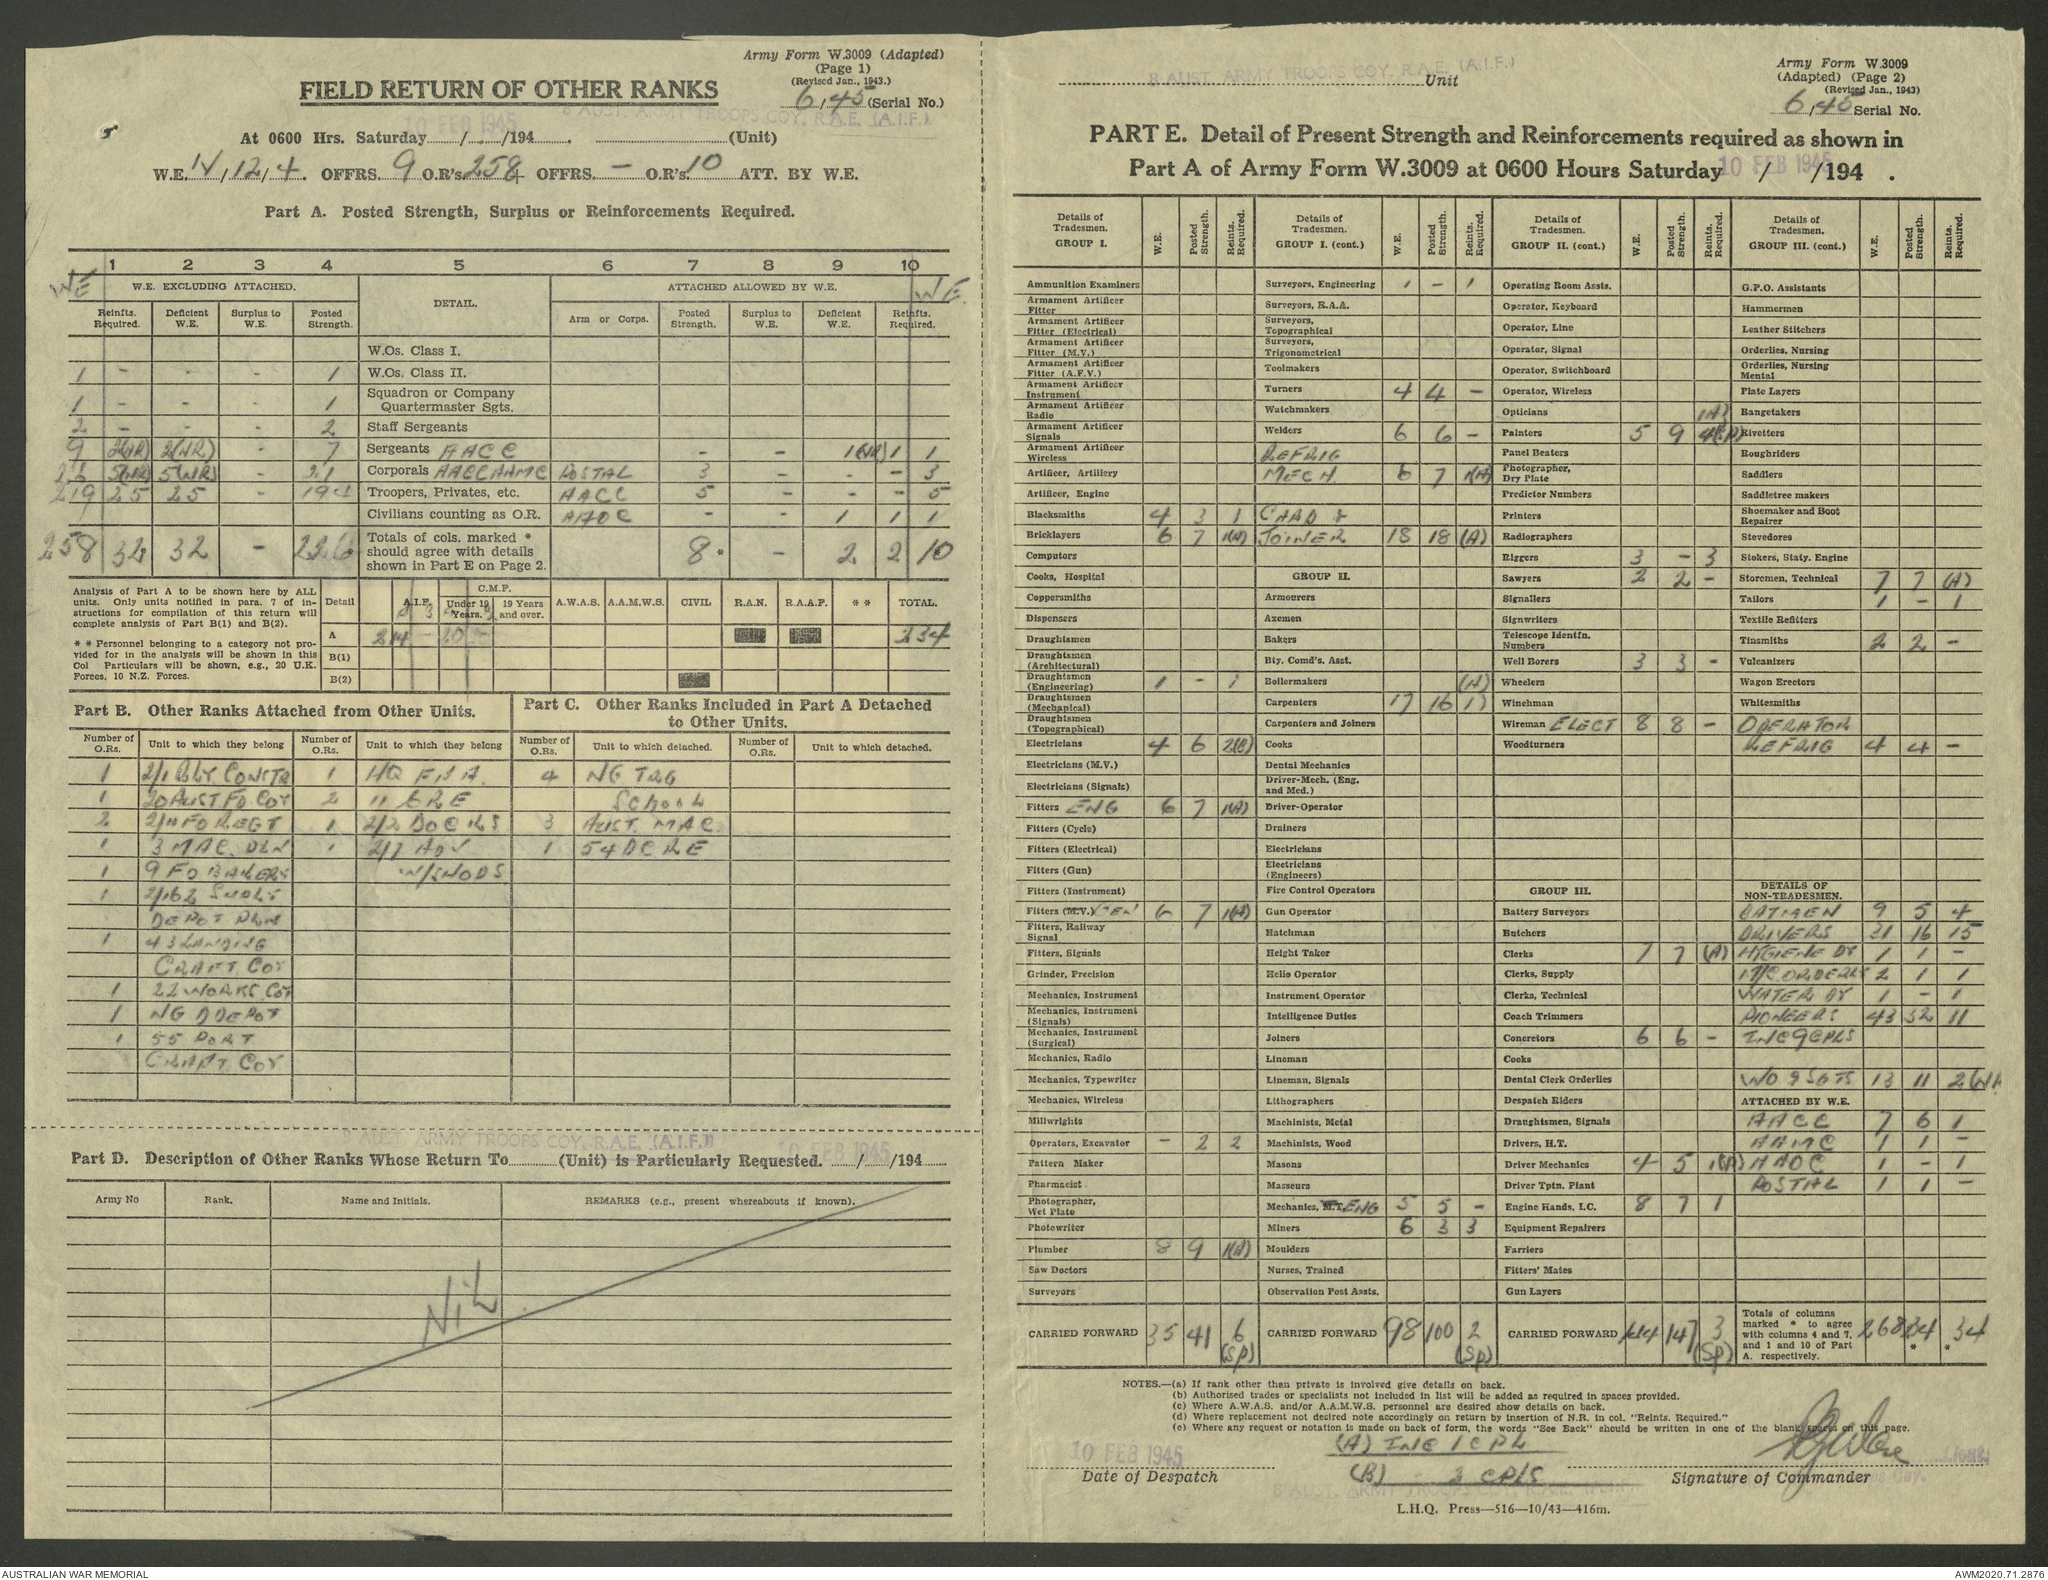 Army Form W.3009 (Adapted)
(Page 1)
(Revised Jan., 1943.)
FIELD RETURN OF OTHER RANKS
6/45 (Serial No.)
10 FEB 1945 8 AUST. ARMY TROOPS COY. R.A.E. (A.I.F.)
At 0600 Hrs. Saturday / /194 . (Unit)
W.E. IV/12/4. OFFRS. 9 O.R's. 258 + OFFRS. — O.R's. 10 ATT. BY W.E.
Part A. Posted Strength, Surplus or Reinforcements Required.
1 2 3 4 5 6 7 8 9 10
WE W.E. EXCLUDING ATTACHED. DETAIL. ATTACHED ALLOWED BY W.E. WE
Reinfts. Required. Deficient W.E. Surplus to W.E. Posted Strength. Arm or Corps. Posted Strength. Surplus to W.E. Deficient W.E. Reinfts. Required.
W.Os. Class I.
1 - - - 1 W.Os. Class II.
1 - - - 1 Squadron or Company Quartermaster Sgts.
2 - - - 2 Staff Sergeants
9 2(NR) 2(NR) - 7 Sergeants AACC - - 1(NR) 1 1
26 5(NR) 5(NR) - 21 Corporals AACC AAMC POSTAL 3 - - - 3
219 25 25 - 194 Troopers, Privates, etc. AACC 5 - - - 5
Civilians counting as O.R. AAOC - - 1 1 1
258 32 32 - 226 Totals of cols. marked * should agree with details shown in Part E on Page 2. 8* - 2 2 10
Analysis of Part A to be shown here by ALL units. Only units notified in para. 7 of instructions for compilation of this return will complete analysis of Part B(1) and B(2).
** Personnel belonging to a category not provided for in the analysis will be shown in this Col Particulars will be shown, e.g., 20 U.K. Forces, 10 N.Z. Forces.
Detail A.I.F. C.M.F. Under 19 Years. 19 Years and over. A.W.A.S. A.A.M.W.S. CIVIL R.A.N. R.A.A.F. ** TOTAL.
A 214 - 20 - 234
B(1)
B(2)
Part B. Other Ranks Attached from Other Units.
Part C. Other Ranks Included in Part A Detached to Other Units.
Number of O.Rs. Unit to which they belong Number of O.Rs. Unit to which they belong Number of O.Rs. Unit to which detached. Number of O.Rs. Unit to which detached.
1 2/1 RLY CONSTR 1 HQ 4 NG TRG
1 20 AUST FD COY 2 11 CRE SCHOOL
2 2/11 FD REGT 1 2/2 DOCKS 3 AUST. MAC
1 3 MAC. PLN 1 2/7 ADV 1 54 DCRE
1 9 FD BAKERS W/SHOPS
1 2/162 SUPLY
DEPOT PLN
1 43 LANDING
CRAFT COY
1 22 WORKS COY
1 NG DDEPOT
1 55 PORT
CRAFT COY
8 AUST. ARMY TROOPS COY. R.A.E. (A.I.F.) 10 FEB 1945
Part D. Description of Other Ranks Whose Return To (Unit) is Particularly Requested. / /194
Army No Rank. Name and Initials. REMARKS (e.g., present whereabouts if known).
NIL
8 AUST. ARMY TROOPS COY. R.A.E. (A.I.F.) Unit
Army Form W.3009
(Adapted) (Page 2)
(Revised Jan., 1943)
6/45 Serial No.
PART E. Detail of Present Strength and Reinforcements required as shown in
Part A of Army Form W.3009 at 0600 Hours Saturday 10 FEB 1945 / /194 .
Details of Tradesmen. GROUP I. W.E. Posted Strength. Reints. Required.
Ammunition Examiners
Armament Artificer Fitter
Armament Artificer Fitter (Electrical)
Armament Artificer Fitter (M.V.)
Armament Artificer Fitter (A.F.V.)
Armament Artificer Instrument
Armament Artificer Radio
Armament Artificer Signals
Armament Artificer Wireless
Artificer, Artillery
Artificer, Engine
Blacksmiths 4 3 1
Bricklayers 6 7 1(A)
Computors
Cooks, Hospital
Coppersmiths
Dispensers
Draughtsmen
Draughtsmen (Architectural)
Draughtsmen (Engineering) 1 - 1
Draughtsmen (Mechanical)
Draughtsmen (Topographical)
Electricians 4 6 2(B)
Electricians (M.V.)
Electricians (Signals)
Fitters ENG 6 7 1(A)
Fitters (Cycle)
Fitters (Electrical)
Fitters (Gun)
Fitters (Instrument)
Fitters (M.V.) GEN 6 7 1(A)
Fitters, Railway Signal
Fitters, Signals
Grinder, Precision
Mechanics, Instrument
Mechanics, Instrument (Signals)
Mechanics, Instrument (Surgical)
Mechanics, Radio
Mechanics, Typewriter
Mechanics, Wireless
Millwrights
Operators, Excavator - 2 2
Pattern Maker
Pharmacist
Photographer, Wet Plate
Photowriter
Plumber 8 9 1(A)
Saw Doctors
Surveyors
CARRIED FORWARD 35 41 6 (SP)
Details of Tradesmen. GROUP I. (cont.) W.E. Posted Strength. Reints. Required.
Surveyors, Engineering 1 - 1
Surveyors, R.A.A.
Surveyors, Topographical
Surveyors, Trigonometrical
Toolmakers
Turners 4 4 -
Watchmakers
Welders 6 6 -
REFRIG
MECH 6 7 1(A)
CARP &
JOINER 18 18 (A)
GROUP II.
Armourers
Axemen
Bakers
Bty. Comd's. Asst.
Boilermakers (A)
Carpenters 17 16 1
Carpenters and Joiners
Cooks
Dental Mechanics
Driver-Mech. (Eng. and Med.)
Driver-Operator
Drainers
Electricians
Electricians (Engineers)
Fire Control Operators
Gun Operator
Hatchman
Height Taker
Helio Operator
Instrument Operator
Intelligence Duties
Joiners
Lineman
Lineman, Signals
Lithographers
Machinists, Metal
Machinists, Wood
Masons
Masseurs
Mechanics, M.T. ENG 5 5 -
Miners 6 3 3
Moulders
Nurses, Trained
Observation Post Assts.
CARRIED FORWARD 98 100 2 (SP)
Details of Tradesmen. GROUP II. (cont.) W.E. Posted Strength. Reints. Required.
Operating Room Assts.
Operator, Keyboard
Operator, Line
Operator, Signal
Operator, Switchboard
Operator, Wireless
Opticians 1(A)
Painters 5 9 4
Panel Beaters
Photographer, Dry Plate
Predictor Numbers
Printers
Radiographers
Riggers 3 - 3
Sawyers 2 2 -
Signallers
Signwriters
Telescope Identfn. Numbers
Well Borers 3 3 -
Wheelers
Winchman
Wireman ELECT 8 8 -
Woodturners
GROUP III.
Battery Surveyors
Butchers
Clerks 7 7 (A)
Clerks, Supply
Clerks, Technical
Coach Trimmers
Concretors 6 6 -
Cooks
Dental Clerk Orderlies
Despatch Riders
Draughtsmen, Signals
Drivers, H.T.
Driver Mechanics 4 5 1(A)
Driver Tptn. Plant
Engine Hands, I.C. 8 7 1
Equipment Repairers
Farriers
Fitters' Mates
Gun Layers
CARRIED FORWARD 144 147 3 (SP)
Details of Tradesmen. GROUP III. (cont.) W.E. Posted Strength. Reints. Required.
G.P.O. Assistants
Hammermen
Leather Stitchers
Orderlies, Nursing
Orderlies, Nursing Mental
Plate Layers
Rangetakers
Rivetters
Roughriders
Saddlers
Saddletree makers
Shoemaker and Boot Repairer
Stevedores
Stokers, Staty. Engine
Storemen, Technical 7 7 (A)
Tailors 1 - 1
Textile Refitters
Tinsmiths 2 2 -
Vulcanizers
Wagon Erectors
Whitesmiths
OPERATOR
REFRIG 4 4 -
DETAILS OF NON-TRADESMEN.
BATMEN 9 5 4
DRIVERS 31 16 15
HYGIENE DY 1 1 -
M/C ORDERLY 2 1 1
WATER DY 1 - 1
PIONEERS 43 32 11
INC 9 CPLS
WO & SGTS 13 11 2(NR
ATTACHED BY W.E.
AACC 7 6 1
AAMC 1 1 -
AAOC 1 - 1
POSTAL 1 1 -
Totals of columns marked * to agree with columns 4 and 7, and 1 and 10 of Part A. respectively. 268 234 * 34 *
NOTES.—(a) If rank other than private is involved give details on back.
(b) Authorised trades or specialists not included in list will be added as required in spaces provided.
(c) Where A.W.A.S. and/or A.A.M.W.S. personnel are desired show details on back.
(d) Where replacement not desired note accordingly on return by insertion of N.R. in col. "Reints. Required."
(e) Where any request or notation is made on back of form, the words "See Back" should be written in one of the blank spaces on this page.
(A) INC 1 CPL
10 FEB 1945
Date of Despatch (B) - 2 CPLS Signature of Commander
8 AUST. ARMY TROOPS COY. R.A.E. (A.I.F.)
L.H.Q. Press—516—10/43—416m.
AUSTRALIAN WAR MEMORIAL
AWM2020.71.2876